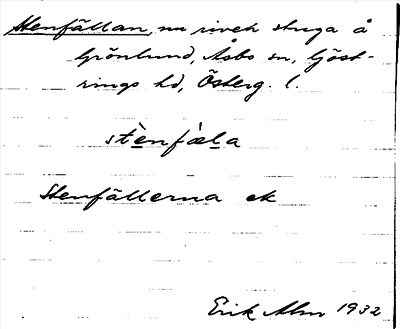 Stenfällan, nu riven stuga å
Grönlund, Åsbo sn, Göst-
rings hd, Österg. l.
stènfæla
Stenfällerna ek
Erik Alm 1932